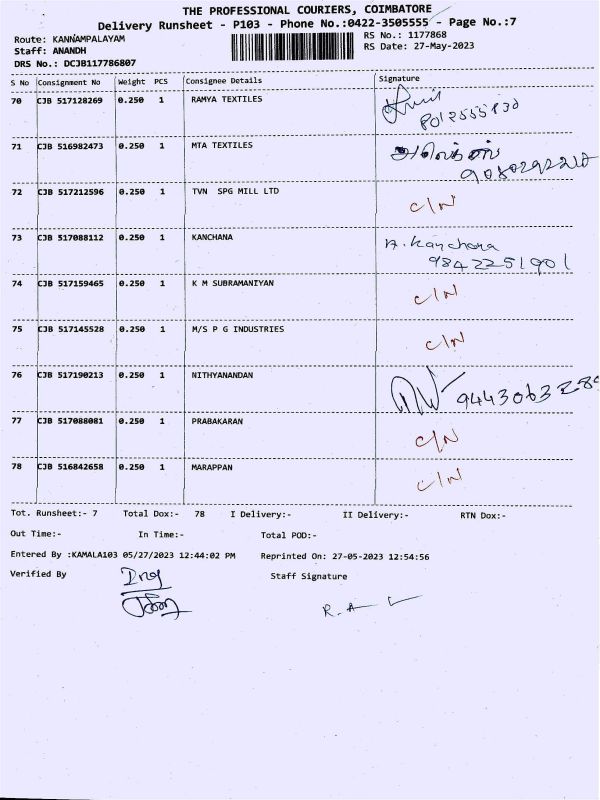 THE PROFESSIONAL COURIERS, COIMBATORE
Delivery Runsheet - P103 - Phone No.:0422-3505555 - Page No.:7
Route: KANNAMPALAYAM
RS No.: 1177868
Staff: ANANDH
RS Date: 27-May-2023
DRS No.: DCJB117786807
S No Consignment No Weight PCS Consignee Details Signature
70 CJB 517128269 0.250 1 RAMYA TEXTILES
71 CJB 516982473 0.250 1 MTA TEXTILES
72 CJB 517212596 0.250 1 TVN SPG MILL LTD C/N
73 CJB 517088112 0.250 1 KANCHANA A. Kanchana
9842251901
74 CJB 517159465 0.250 1 K M SUBRAMANIYAN C/N
75 CJB 517145528 0.250 1 M/S P G INDUSTRIES C/N
76 CJB 517190213 0.250 1 NITHYANANDAN
77 CJB 517088081 0.250 1 PRABAKARAN C/N
78 CJB 516842658 0.250 1 MARAPPAN C/N
Tot. Runsheet:- 7 Total Dox:- 78 I Delivery:- II Delivery:- RTN Dox:-
Out Time:- In Time:- Total POD:-
Entered By :KAMALA103 05/27/2023 12:44:02 PM Reprinted On: 27-05-2023 12:54:56
Verified By Staff Signature